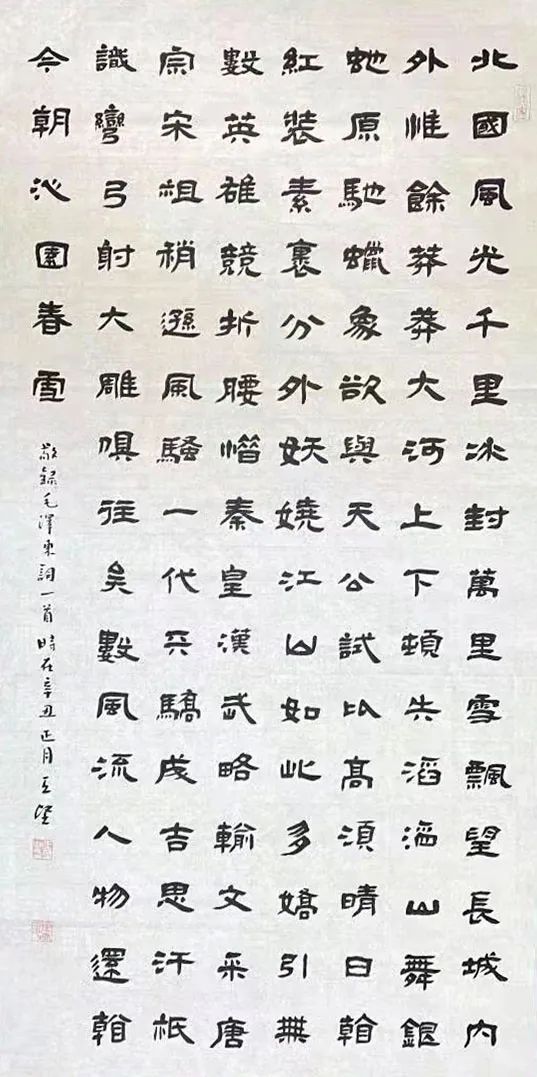 北國風光千里冰封萬里雪飄望長城內
外惟餘莽莽大河上下頓失滔滔山舞銀
虵原馳蠟象欲與天公試比高須晴日看
紅裝素裹分外妖嬈江山如此多嬌引無
數英雄競折腰惜秦皇漢武略輸文采唐
宗宋祖稍遜風騷一代天驕成吉思汗祇
識彎弓射大雕俱往矣數風流人物還看
今朝沁園春雪
敬錄毛澤東詞一首時在辛丑正月